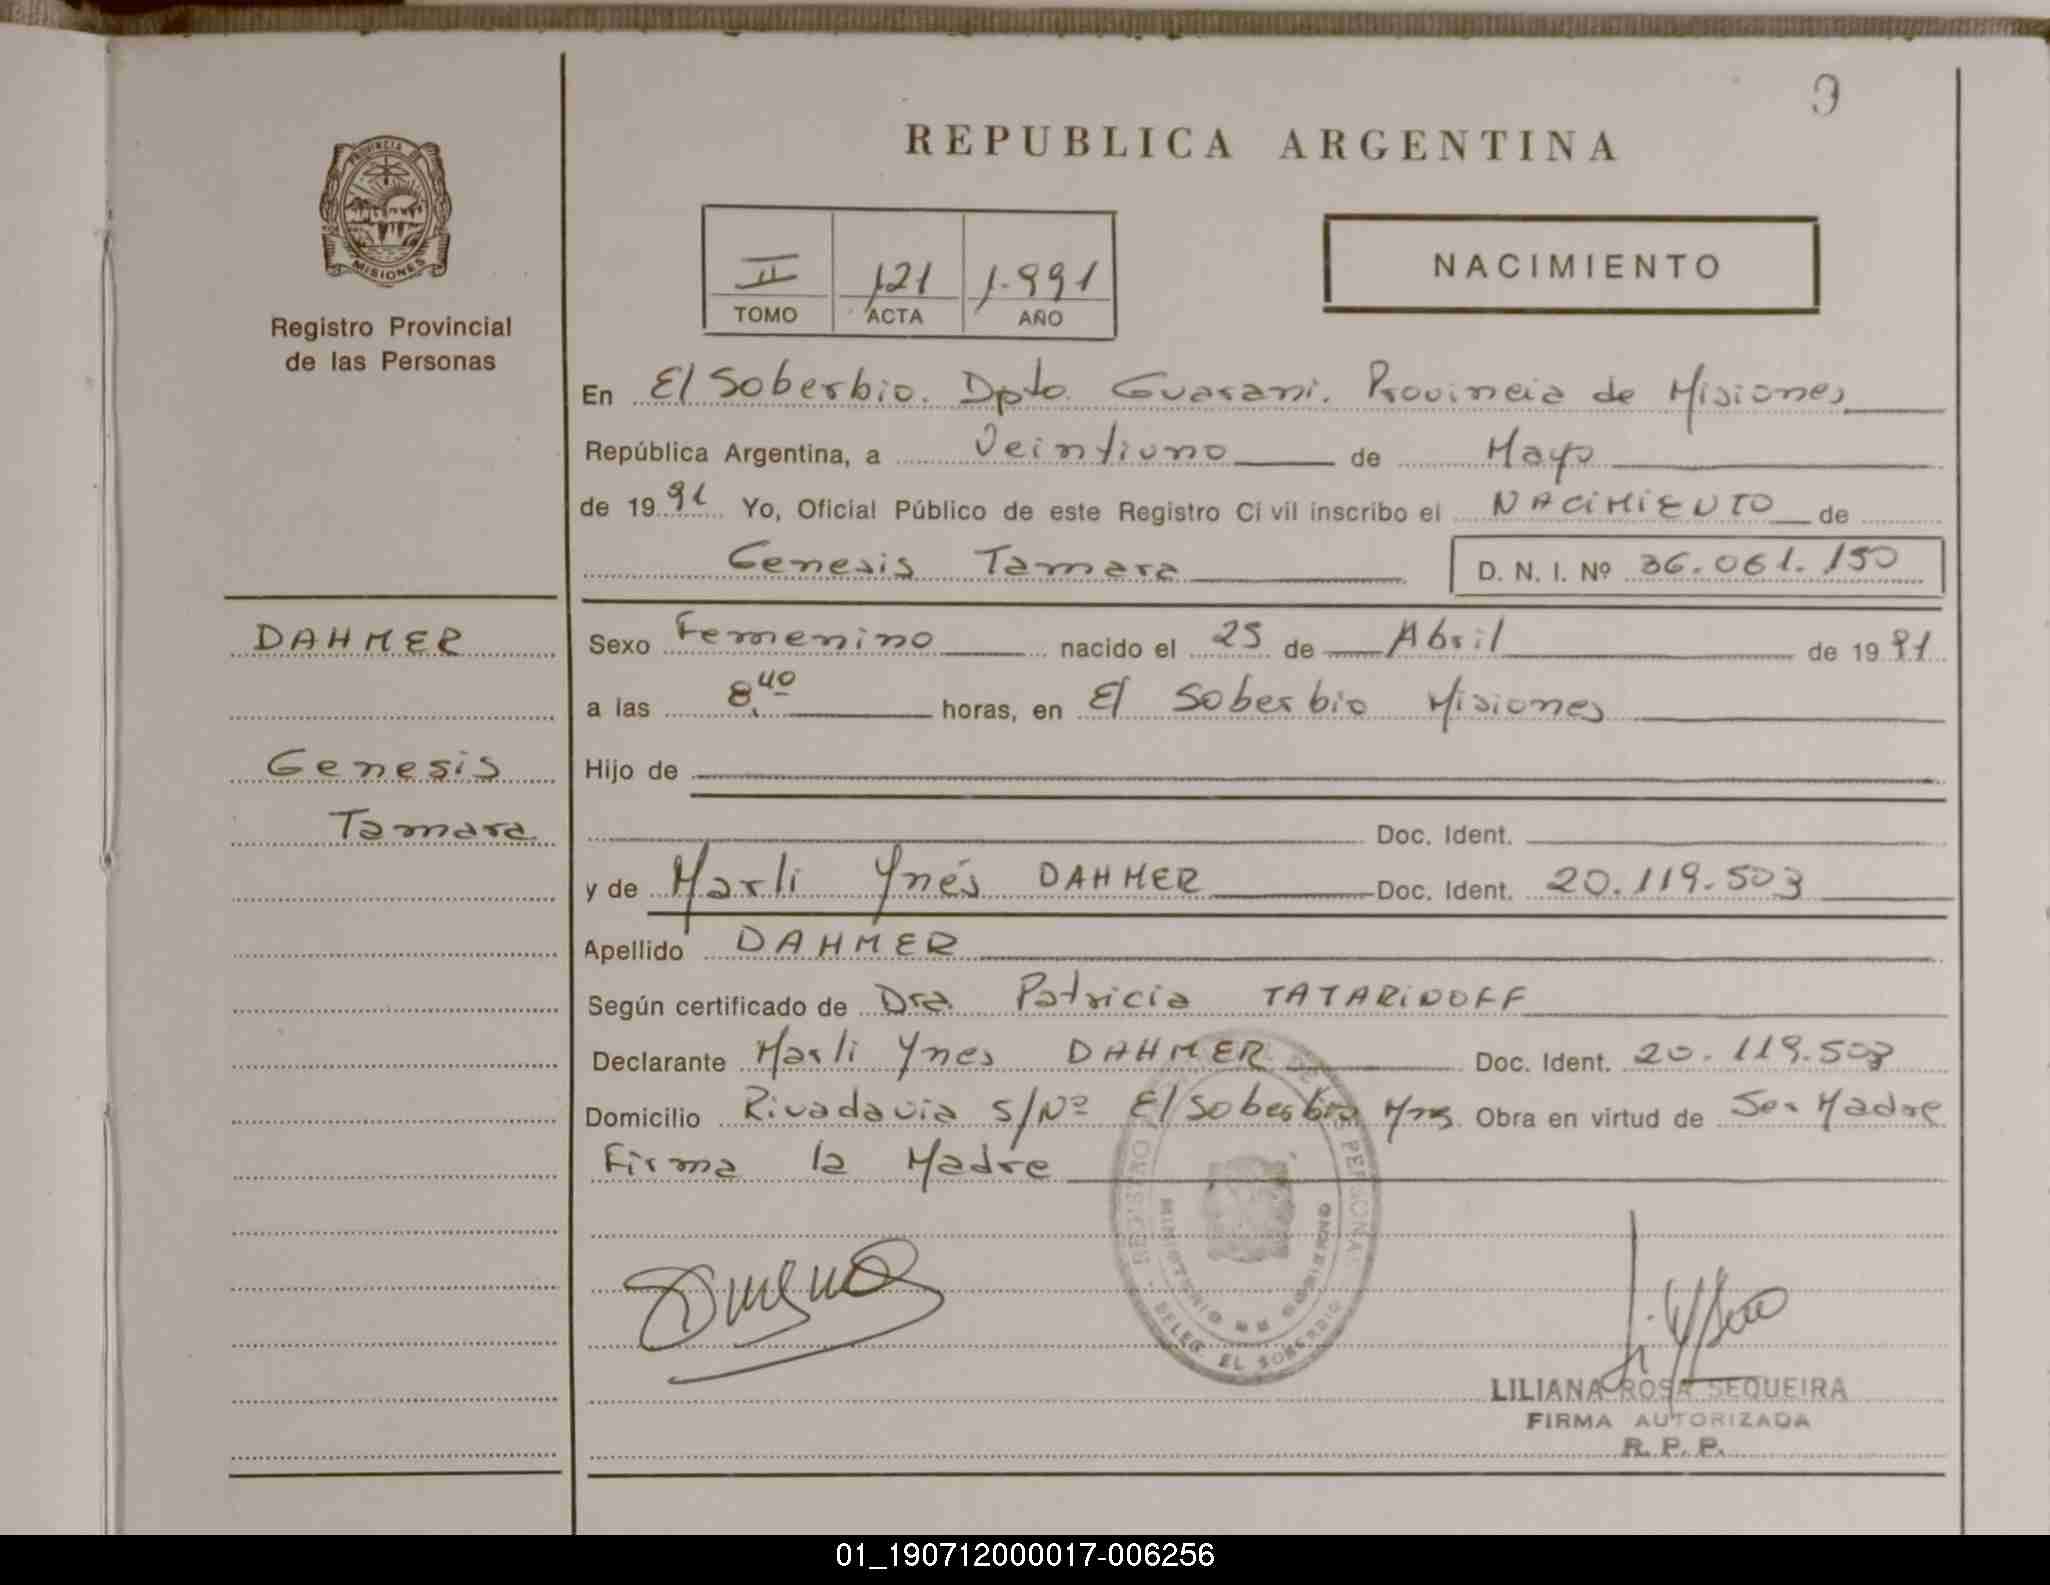 PROVINCIA DE
MISIONES
Registro Provincial
de las Personas
REPUBLICA ARGENTINA
II 121 1.991
TOMO ACTA AÑO
NACIMIENTO
En El Soberbio. Dpto. Guarani. Provincia de Misiones
República Argentina, a Veintiuno de Mayo
de 1991 Yo, Oficial Público de este Registro Civil inscribo el NACIMIENTO de
Genesis Tamara D. N. I. Nº 36.061.150
DAHMER
Genesis
Tamara
Sexo Femenino nacido el 25 de Abril de 1991
a las 8,40 horas, en El Soberbio Misiones
Hijo de
Doc. Ident.
y de Marli Ynés DAHMER Doc. Ident. 20.119.503
Apellido DAHMER
Según certificado de Dra. Patricia TATARINOFF
Declarante Marli Ynes DAHMER Doc. Ident. 20.119.503
Domicilio Rivadavia S/Nº El Soberbio Mnes Obra en virtud de Ser Madre
Firma la Madre
MINISTERIO DE GOBIERNO
DELEG. EL SOBERBIO
LILIANA ROSA SEQUEIRA
FIRMA AUTORIZADA
R. P. P.
01_190712000017-006256